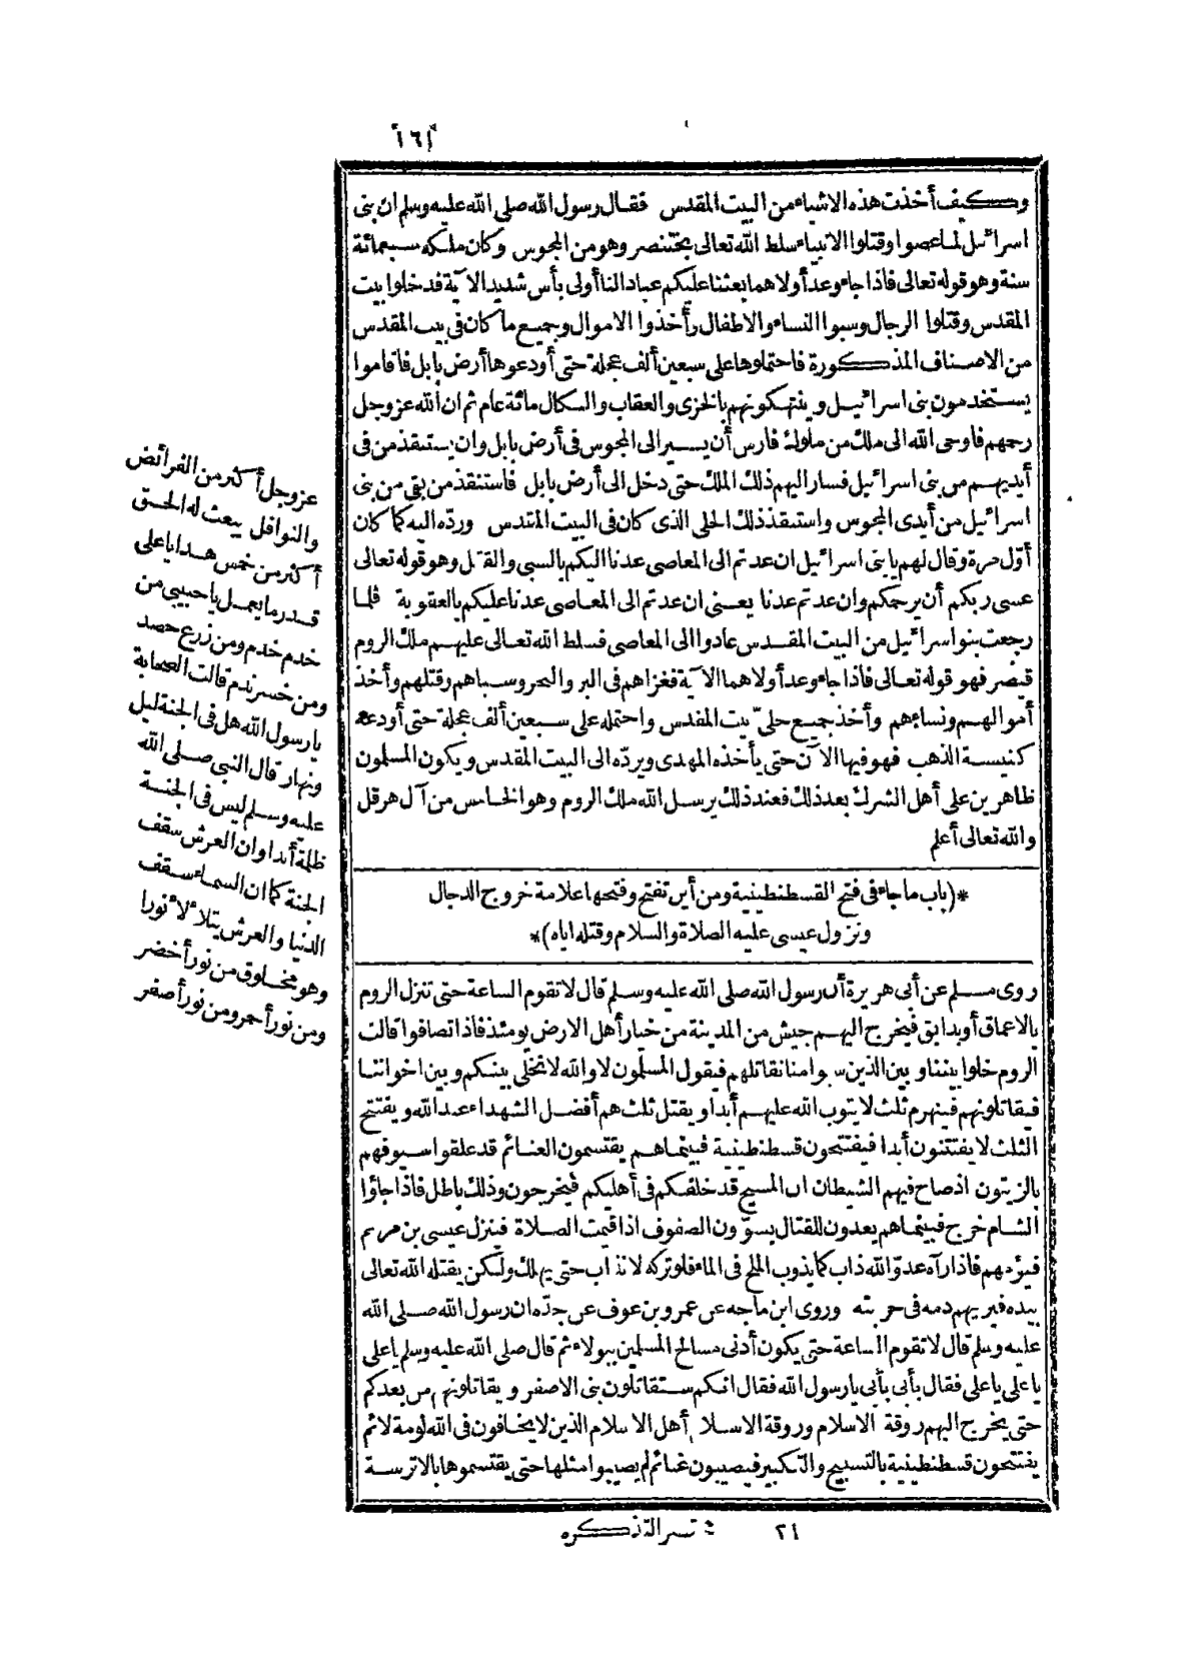 ١٦١
وكيف أخذت هذه الاشياء من البيت المقدس فقال رسول الله صلى الله عليه وسلم ان بنى
اسرائيل لما عصوا وقتلوا الانبياء سلط الله تعالى بختنصر وهو من المجوس وكان ملكه سبعمائة
سنة وهو قوله تعالى فاذا جاء وعد أولاهما بعثنا عليكم عبادا لنا أولى بأس شديد الآية فدخلوا بيت
المقدس وقتلوا الرجال وسبوا النساء والاطفال وأخذوا الاموال وجميع ما كان فى بيت المقدس
من الاصناف المذكورة فاحتملوها على سبعين ألف عجلة حتى أودعوها أرض بابل فاقاموا
يستخدمون بنى اسرائيل وينتهكونهم بالخزى والعقاب والنكال مائة عام ثم ان الله عز وجل
رحمهم فاوحى الله الى ملك من ملوك فارس أن يسير الى المجوس فى أرض بابل وان يستنقذ من فى
أيديهم من بنى اسرائيل فسار اليهم ذلك الملك حتى دخل الى أرض بابل فاستنقذ من بقى من بنى
اسرائيل من أيدى المجوس واستنقذ ذلك الحلى الذى كان فى البيت المقدس ورده اليه كما كان
أول مرة وقال لهم يا بنى اسرائيل ان عدتم الى المعاصى عدنا اليكم بالسبى والقتل وهو قوله تعالى
عسى ربكم أن يرحمكم وان عدتم عدنا يعنى ان عدتم الى المعاصى عدنا عليكم بالعقوبة فلما
رجعت بنو اسرائيل من البيت المقدس عادوا الى المعاصى فسلط الله تعالى عليهم ملك الروم
قيصر فهو قوله تعالى فاذا جاء وعد أولاهما الآية فغزاهم فى البر والبحر وسباهم وقتلهم وأخذ
أموالهم ونساءهم وأخذ جميع حلىّ بيت المقدس واحتمله على سبعين ألف عجلة حتى أودعه
كنيسة الذهب فهو فيها الآن حتى يأخذه المهدى ويردّه الى البيت المقدس ويكون المسلمون
ظاهرين على أهل الشرك بعد ذلك فعند ذلك يرسل الله ملك الروم وهو الخامس من آل هرقل
والله تعالى أعلم
*(باب ما جاء فى فتح القسطنطينية ومن أين تفتح وفتحها علامة خروج الدجال
ونزول عيسى عليه الصلاة والسلام وقتله اياه)*
روى مسلم عن أبى هريرة أن رسول الله صلى الله عليه وسلم قال لا تقوم الساعة حتى تنزل الروم
بالاعماق أو بدابق فيخرج اليهم جيش من المدينة من خيار أهل الارض يومئذ فاذا تصافوا قالت
الروم خلوا بيننا وبين الذين سبوا منا نقاتلهم فيقول المسلمون لا والله لا نخلى بينكم وبين اخواننا
فيقاتلونهم فينهرم ثلث لا يتوب الله عليهم أبدا ويقتل ثلث هم أفضل الشهداء عند الله ويفتتح
الثلث لا يفتتنون أبدا فيفتتحون قسطنطينية فبينما هم يقتسمون الغنائم قد علقوا سيوفهم
بالزيتون اذ صاح فيهم الشيطان ان المسيح قد خلفكم فى أهليكم فيخرجون وذلك باطل فاذا جاؤا
الشام خرج فبينما هم يعدون للقتال يسوّون الصفوف اذ اقيمت الصلاة فينزل عيسى بن مريم
فيؤمهم فاذا رآه عدوّ الله ذاب كما يذوب الملح فى الماء فلو تركه لانذاب حتى يهلك ولكن يقتله الله تعالى
بيده فيريهم دمه فى حربته وروى ابن ماجه عن عمرو بن عوف عن جدّه ان رسول الله صلى الله
عليه وسلم قال لا تقوم الساعة حتى يكون أدنى مسالح المسلمين ببولاء ثم قال صلى الله عليه وسلم يا على
يا على يا على فقال بأبى بأبى يا رسول الله فقال انكم ستقاتلون بنى الاصفر ويقاتلونهم من بعدكم
حتى يخرج اليهم روقة الاسلام وروقة الاسلام أهل الاسلام الذين لا يخافون فى الله لومة لائم
يفتتحون قسطنطينية بالتسبيح والتكبير فيصيبون غنائم لم يصيبوا مثلها حتى يقتسموها بالاترسة
٢١ تسر التذكره
عز وجل أكثر من الفرائض
والنوافل يبعث له الحق
أكثر من خمس هدايا على
قدر ما يعمل يا حبيبى من
خدم خدم ومن زرع حصد
ومن خسر ندم قالت الصحابة
يا رسول الله هل فى الجنة ليل
ونهار قال النبى صلى الله
عليه وسلم ليس فى الجنة
ظلمة أبدا وان العرش سقف
الجنة كما ان السماء سقف
الدنيا والعرش يتلا ٔلا ٔنورا
وهو مخلوق من نور أخضر
ومن نور أحمر ومن نور أصفر